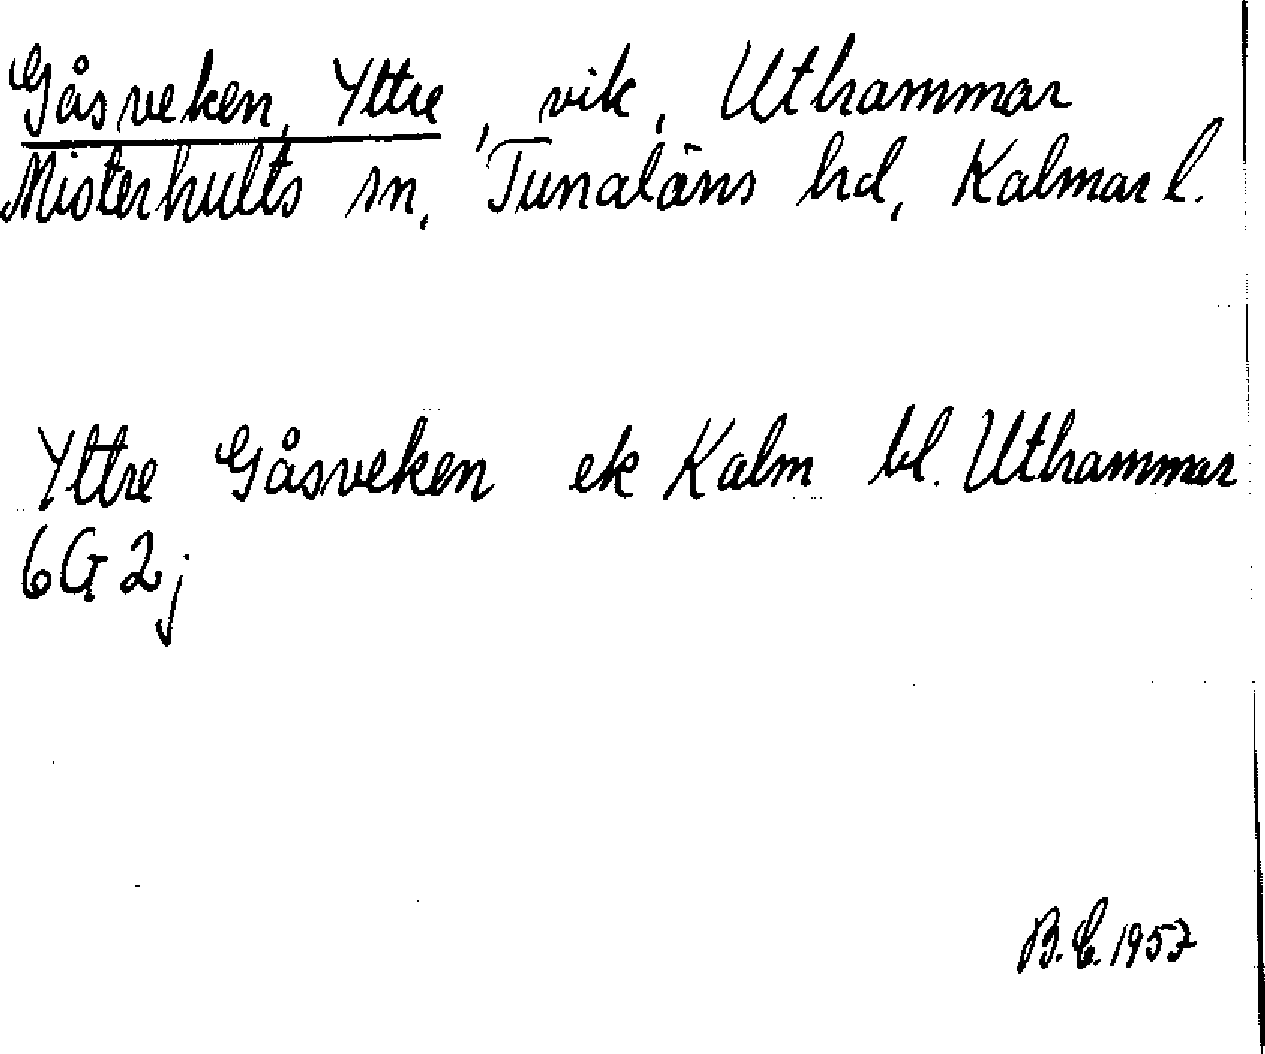 Gåsveken, Yttre, vik, Uthammar
Misterhults sn, Tunaläns hd, Kalmar l.
Yttre Gåsveken ek Kalm bl. Uthammar
6G 2j
B.E. 1957